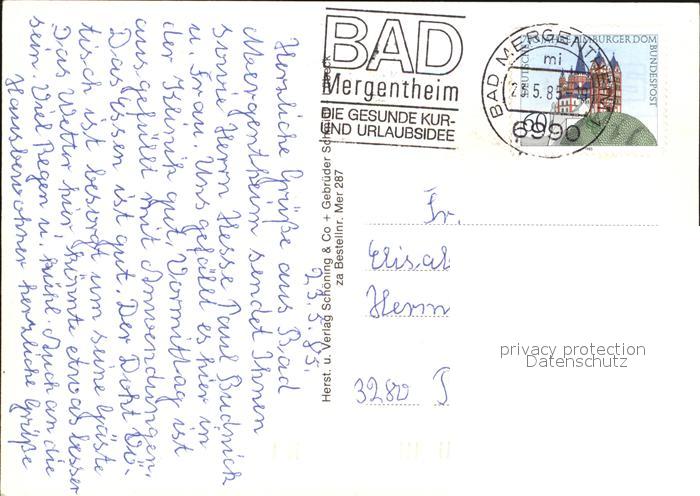 BAD
Mergentheim
DIE GESUNDE KUR-
UND URLAUBSIDEE
BAD MERGENTHEIM
mi
23.5.85
6990
LIMBURGER DOM
DEUTSCHE BUNDESPOST
60
Herzliche Grüße aus Bad
Mergentheim sendet Ihnen
sowie Herrn Hesse Paul Budnick
u. Frau. Uns gefällt es hier in
der Klinik gut. Vormittag ist
ausgefüllt mit Anwendungen.
Das Essen ist gut. Der
tisch ist besorgt um seine Gäste
Das Wetter hier könnte etwas besser
sein. Viel Regen u. kühl. Auch an die
Hausbewohner herzliche Grüße
23.5.85.
Herst. u. Verlag Schöning & Co + Gebrüder Schmidt
za Bestellnr. Mer 287
Fr.
Elisab
Herm
3280
privacy protection
Datenschutz